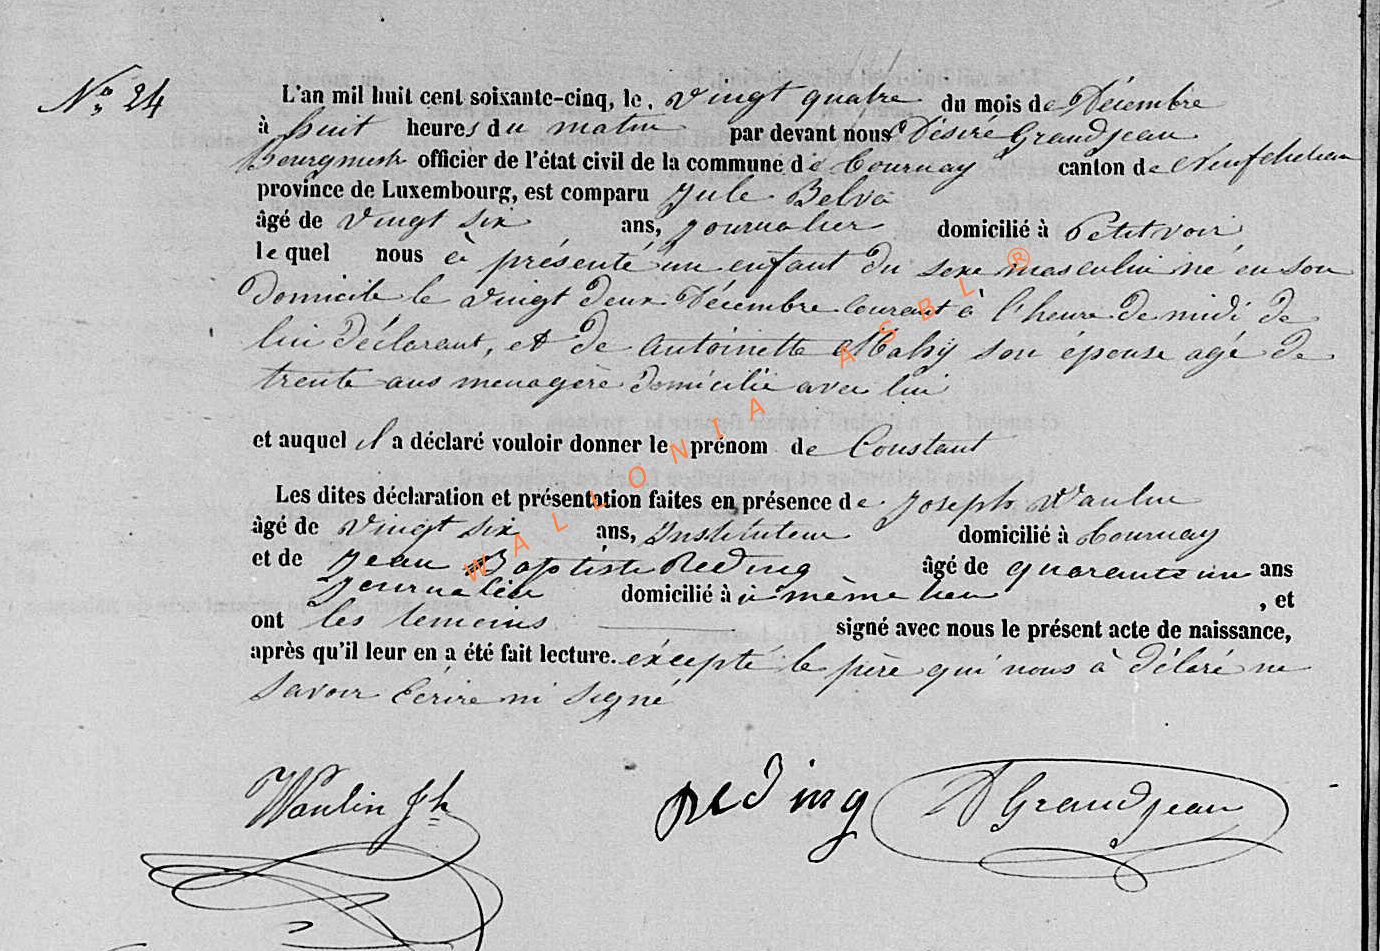 N° 24
L'an mil huit cent soixante-cinq, le vingt quatre du mois de Décembre
à huit heures du matin par devant nous Désiré Grandjean
Bourgmestre officier de l'état civil de la commune de Tournay canton de Neufchateau
province de Luxembourg, est comparu Jule Belva
âgé de vingt six ans, journalier domicilié à Petitvoir
lequel nous à présenté un enfant du sexe masculin né en son
Domicile le vingt deux Décembre courant à l'heure de midi de
lui Déclarant, et de Antoinette Mahy son épouse agé de
trente ans menagère domicilié avec lui
et auquel il a déclaré vouloir donner le prénom de Constant
Les dites déclaration et présentation faites en présence de Joseph Waulin
âgé de vingt six ans, Instituteur domicilié à Tournay
et de Jean Baptiste Reding âgé de quarante un ans
Journalier domicilié à même lieu , et
ont les temoins signé avec nous le présent acte de naissance,
après qu'il leur en a été fait lecture. éxcepté le père qui nous à Déclaré ne
savoir Ecrire ni signé
Waulin Jh reding D Grandjean
WALLONIA ASBL ®